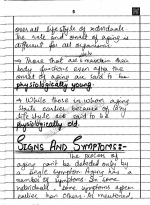 8
over all lifestyle of individual.
The rate and onset of aging is
different for all organisms.
→ Those that are maintain their
body functions even after the
onset of aging are said to be
physiologically young.
→ While those in whom aging
starts earlier because of any
life style are said to be
physiologically old.
SIGNS AND SYMPTOMS:-
The process of
aging can't be detected only by
a single symptom. Aging has a
number of symptoms. In some
individuals some symptoms appear
earlier than others. As mentioned,